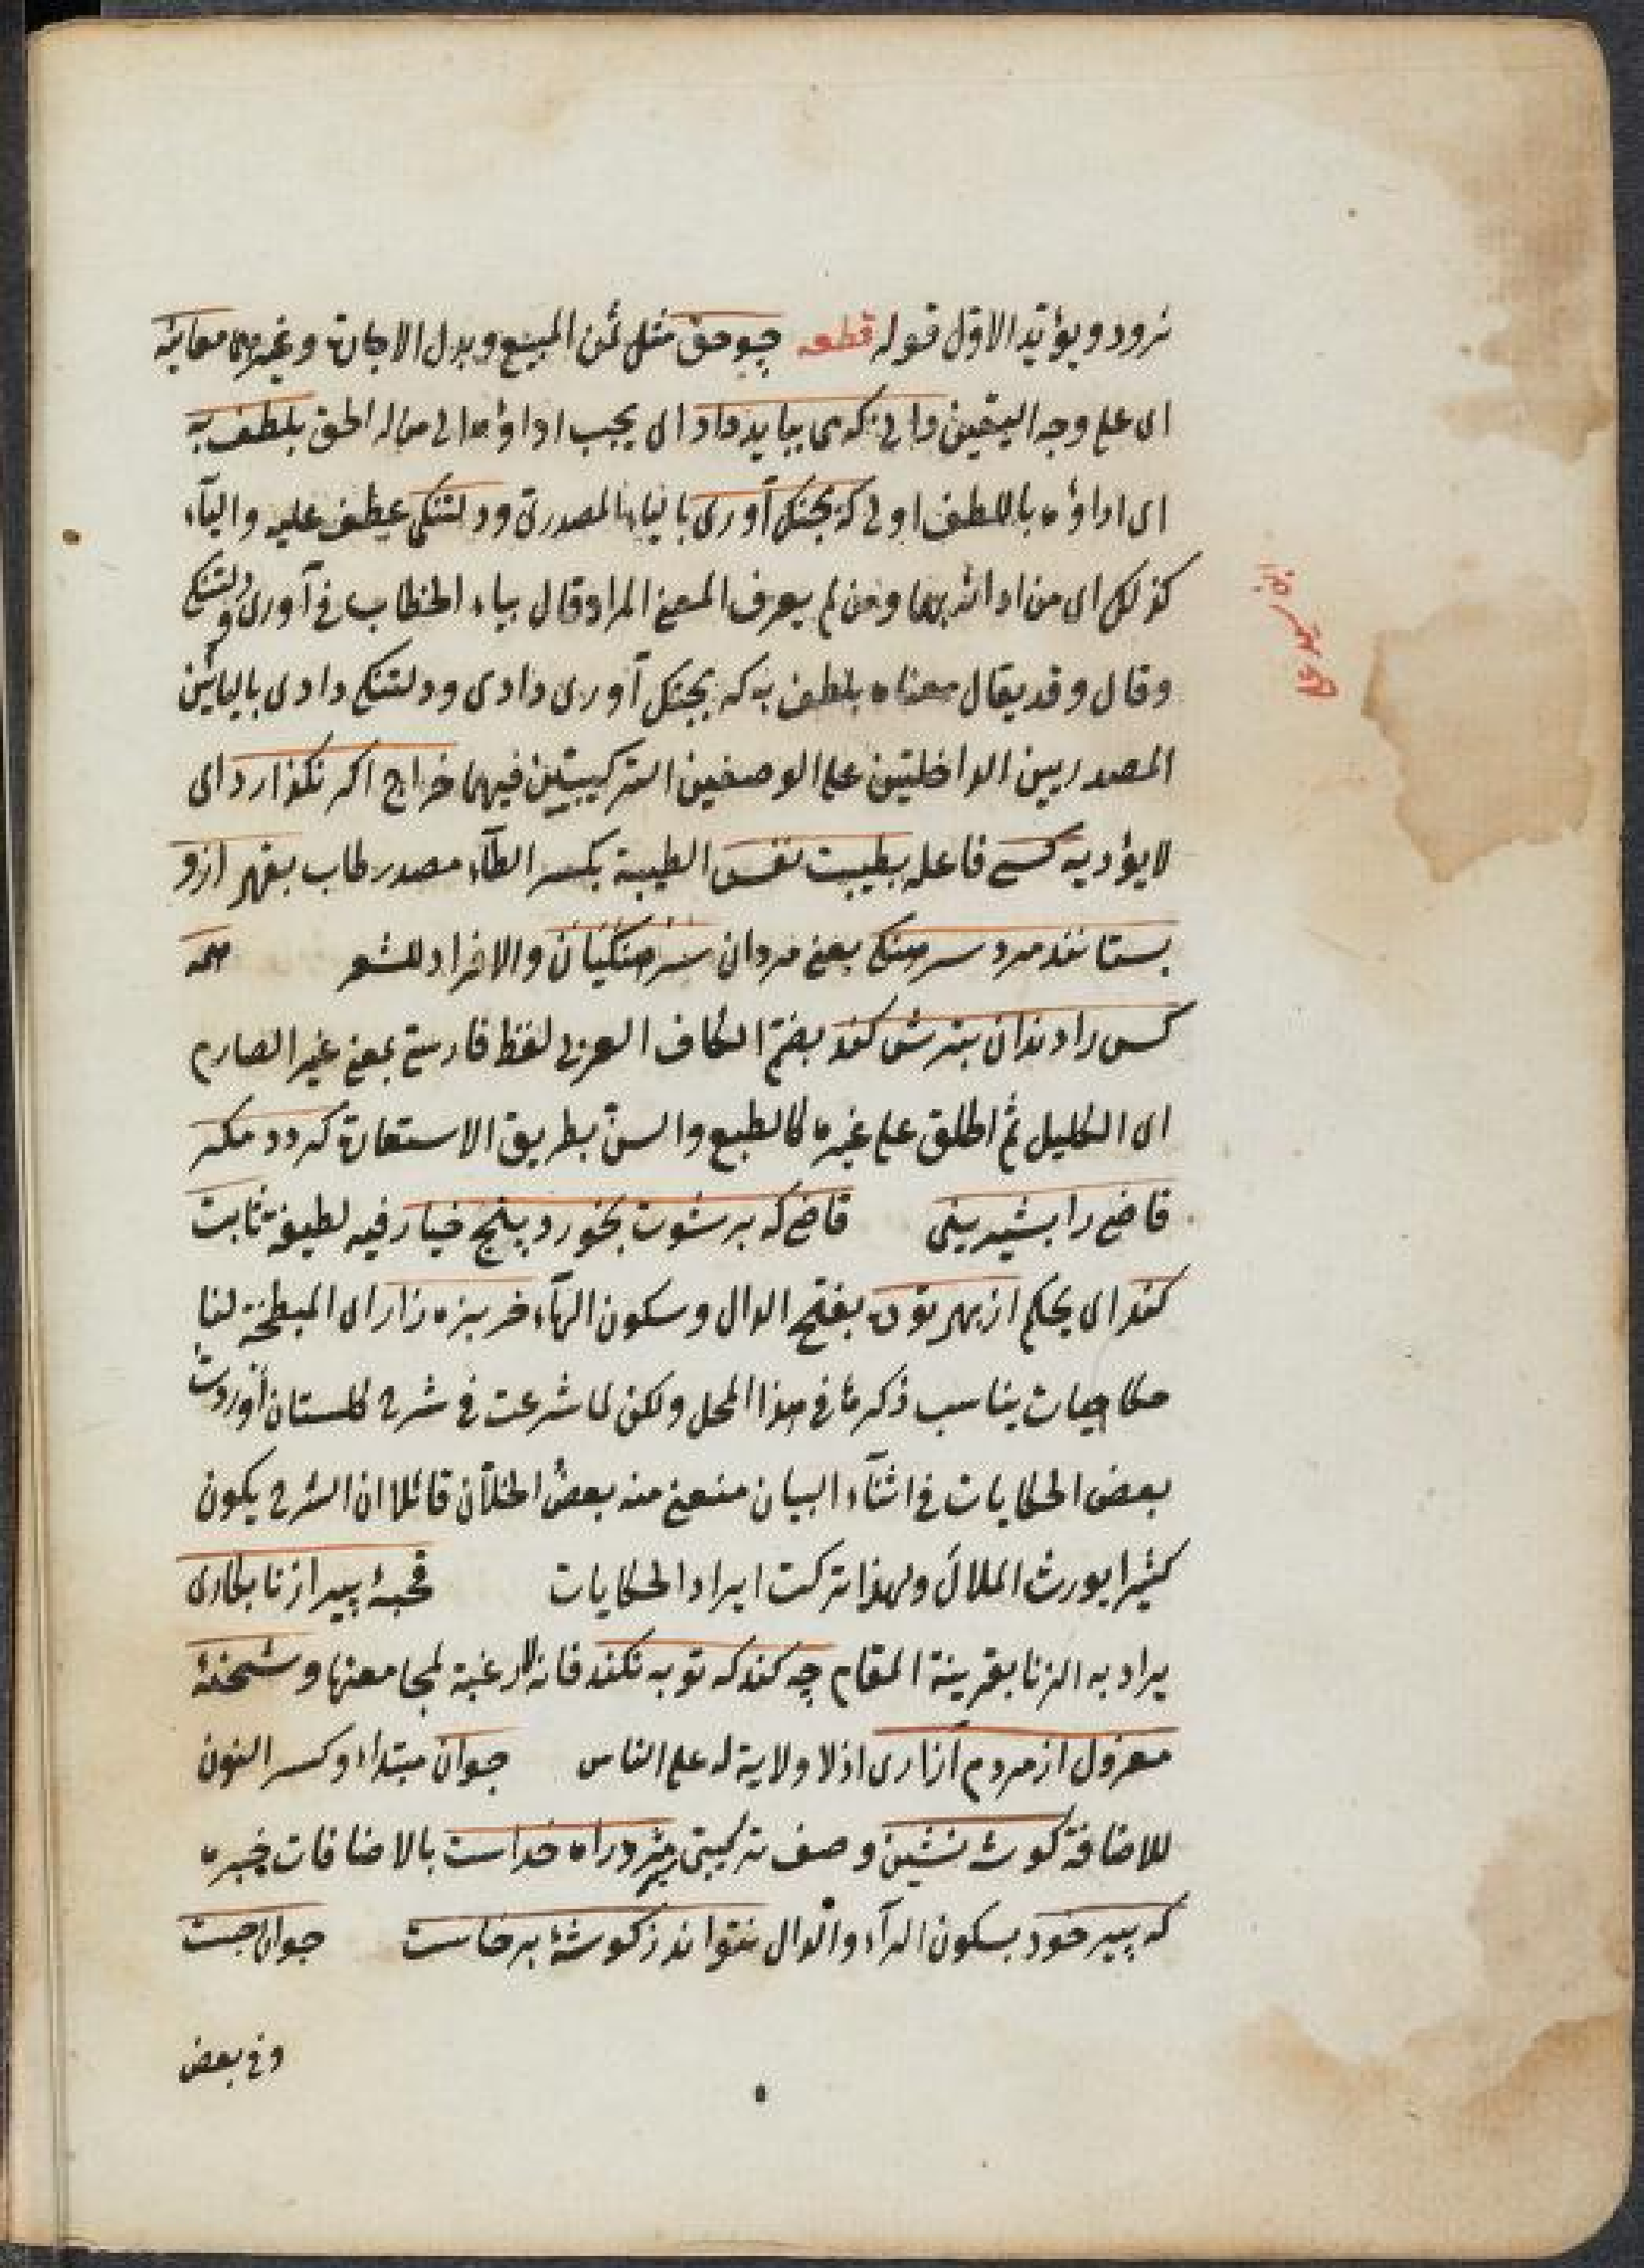 نرود ويؤيد الاول قوله قطعه چو حق مثل ثمن المبيع وبدل الاجارة وغيرهما معاينه
اى على وجه اليقين دانى كه مى ببايد داد اى يجب اداؤه الى من له الحق بلطف به
اى اداؤه باللطف اولى كه بجنك آورى بالياء المصدرى ودلتنكى عطف عليه والياء
كذلك اى من ادائه بهما ومن لم يعرف المعنى المراد قال بياء الخطاب فى آورى ودلتنكى
وقال وقد يقال معناه بلطف به كه بجنك آورى دادى ودلتنكى دادى باليائين
المصدريين الداخلتين على الوصفين التركيبيين فيهما خراج اكر نكذارد اى
لا يؤديه كسى فاعله بطيبت نفس الطيبة بكسر الطاء مصدر طاب بقهر ازو
بستانند مرد سرهنكى يعنى مردان سرهنكيان والافراد للشعر همه
كس را دندان بترش كند بضم الكاف العربى لفظ فارسى بمعنى غير الصارم
اى الكليل ثم اطلق على غيره كالطبع والسن بطريق الاستعارة كردد مكر
قاضى را بشيرينى قاضى كه برشوت بخورد پنج خيار فيه لطيفة ثابت
كند اى يحكم از بهر تو ده بفتح الدال وسكون الهاء خربزه زار اى المبطخة لنا
حكايات يناسب ذكرها فى هذا المحل ولكن لما شرعت فى شرح كلستان اوردت
بعض الحكايات فى اثناء البيان منعنى منه بعض الخلان قائلا ان الشرح يكون
كثيرا يورث الملال ولهذا تركت ايراد الحكايات قحبهٔ پير از نابكارى
يراد به الزنا بقرينة المقام چه كند كه توبه نكند فانه لا رغبة لمجامعتها وشحنهٔ
معزول از مردم آزارى اذ لا ولاية له على الناس جوان مبتداء وكسر النون
للاضافة كوشه نشين وصف تركيبى شير مرد راه خداست بالاضافات خبره
كه پير خود بسكون الراء والدال نتواند ز كوشهٔ برخاست جوان چست
وفى بعض